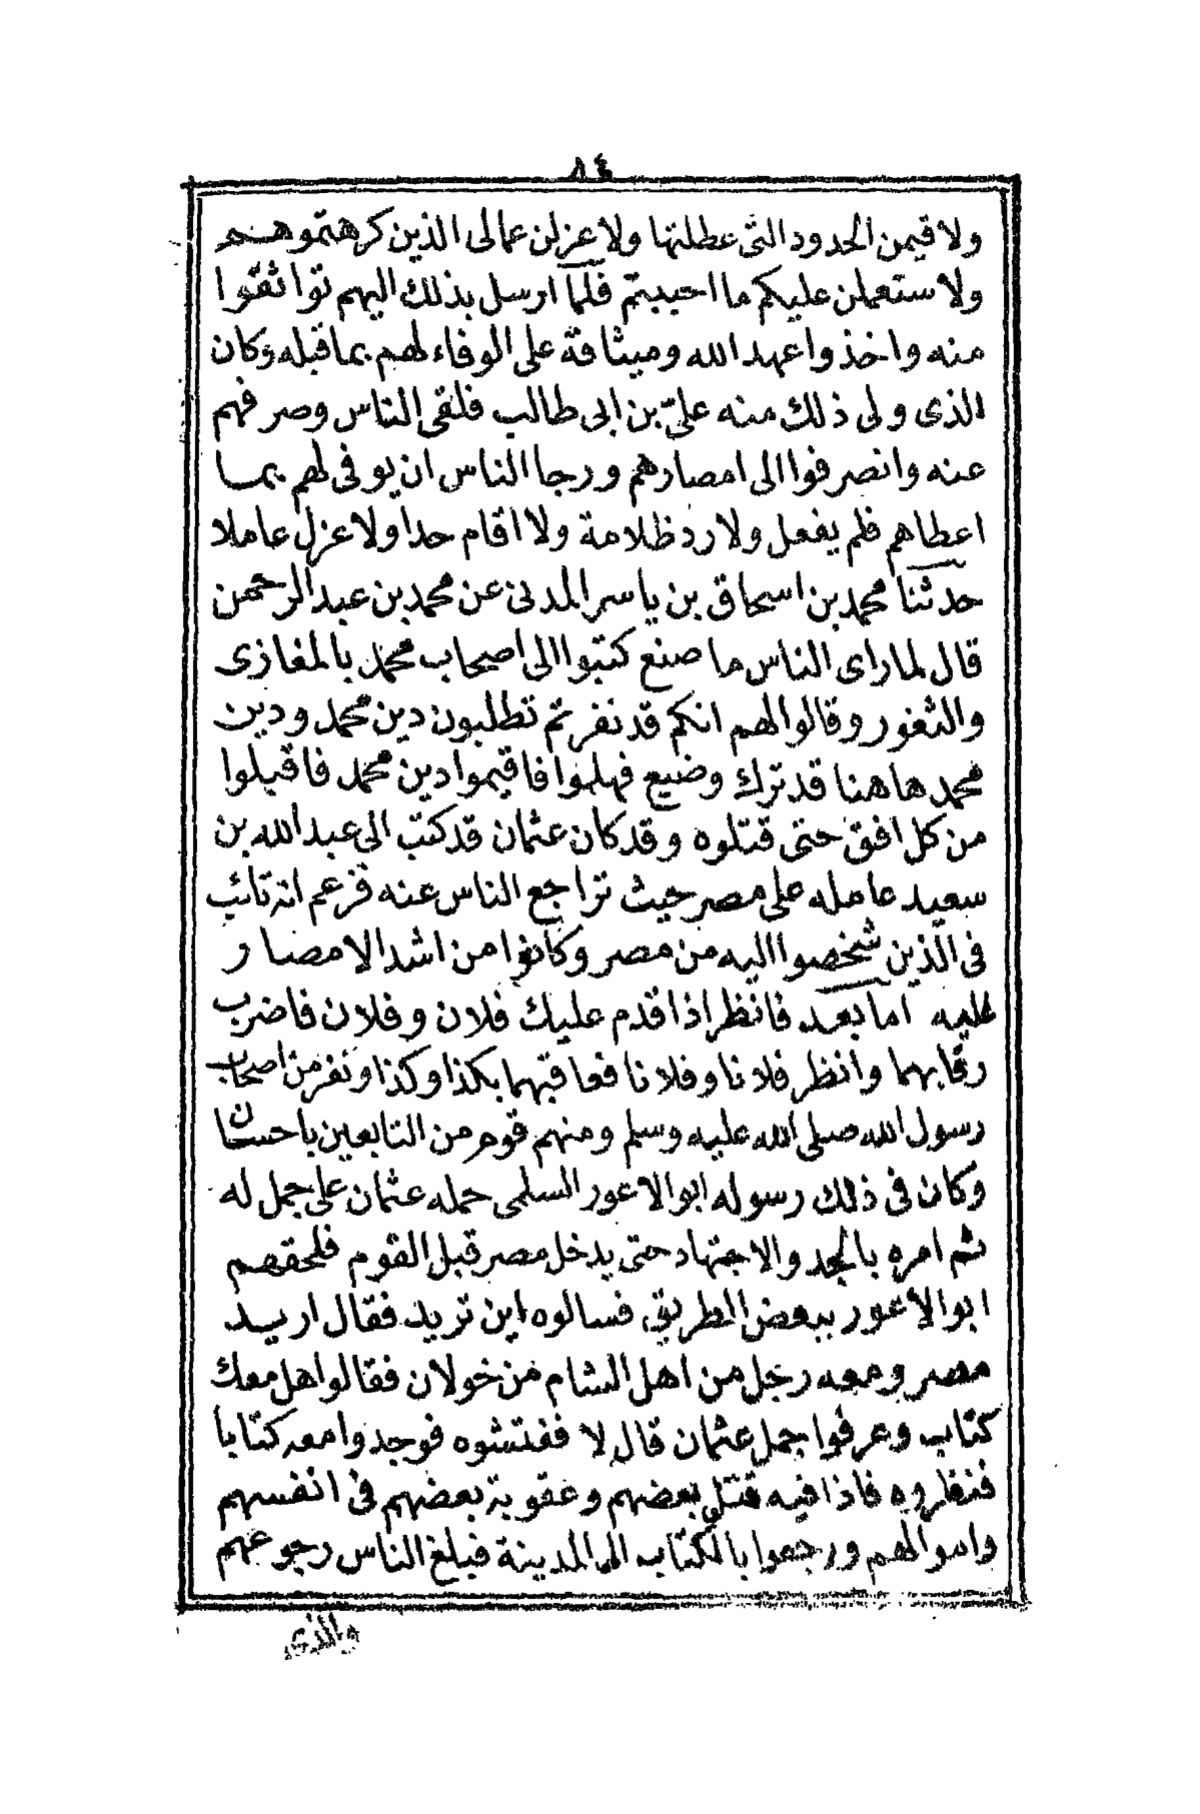 ٨٤
ولا قيمن الحدود التى عطلتها ولا عزلن عمالى الذين كرهتموهم
ولا ستعملن عليكم ما احببتم فلما ارسل بذلك اليهم تواثقوا
منه واخذوا عهد الله وميثاقة على الوفاء لهم بما قبله وكان
الذى ولى ذلك منه علىّ بن ابى طالب فلقى الناس وصرفهم
عنه وانصرفوا الى امصارهم ورجا الناس ان يوفى لهم بما
اعطاهم فلم يفعل ولا رد ظلامة ولا اقام حدا ولا عزل عاملا
حدثنا محمد بن اسحاق بن ياسر المدنى عن محمد بن عبد الرحمن
قال لما راى الناس ما صنع كتبوا الى اصحاب محمد بالمغازى
والثغور وقالوا لهم انكم قد نفرتم تطلبون دين محمد ودين
محمد هاهنا قد ترك وضيع فهلموا فاقيموا دين محمد فاقبلوا
من كل افق حتى قتلوه وقد كان عثمان قد كتب الى عبد الله بن
سعيد عامله على مصر حيث تراجع الناس عنه فزعم انه تائب
فى الذين شخصوا اليه من مصر وكانوا من اشد الامصار
عليه اما بعد فانظر اذا قدم عليك فلان وفلان فاضرب
رقابهما وانظر فلانا وفلانا فعاقبهما بكذا وكذا ونفر من اصحاب
رسول الله صلى الله عليه وسلم ومنهم قوم من التابعين باحسان
وكان فى ذلك رسوله ابو الاعور السلمى حمله عثمان على جمل له
ثم امره بالجد والاجتهاد حتى يدخل مصر قبل القوم فلحقهم
ابو الاعور ببعض الطريق فسالوه اين تريد فقال اريد
مصر ومعه رجل من اهل الشام من خولان فقالوا هل معك
كتاب وعرفوا جمل عثمان قال لا ففتشوه فوجدوا معه كتابا
فنظروه فاذا فيه قتل بعضهم وعقوبة بعضهم فى انفسهم
واموالهم ورجعوا بالكتاب الى المدينة فبلغ الناس رجوعهم
والذى